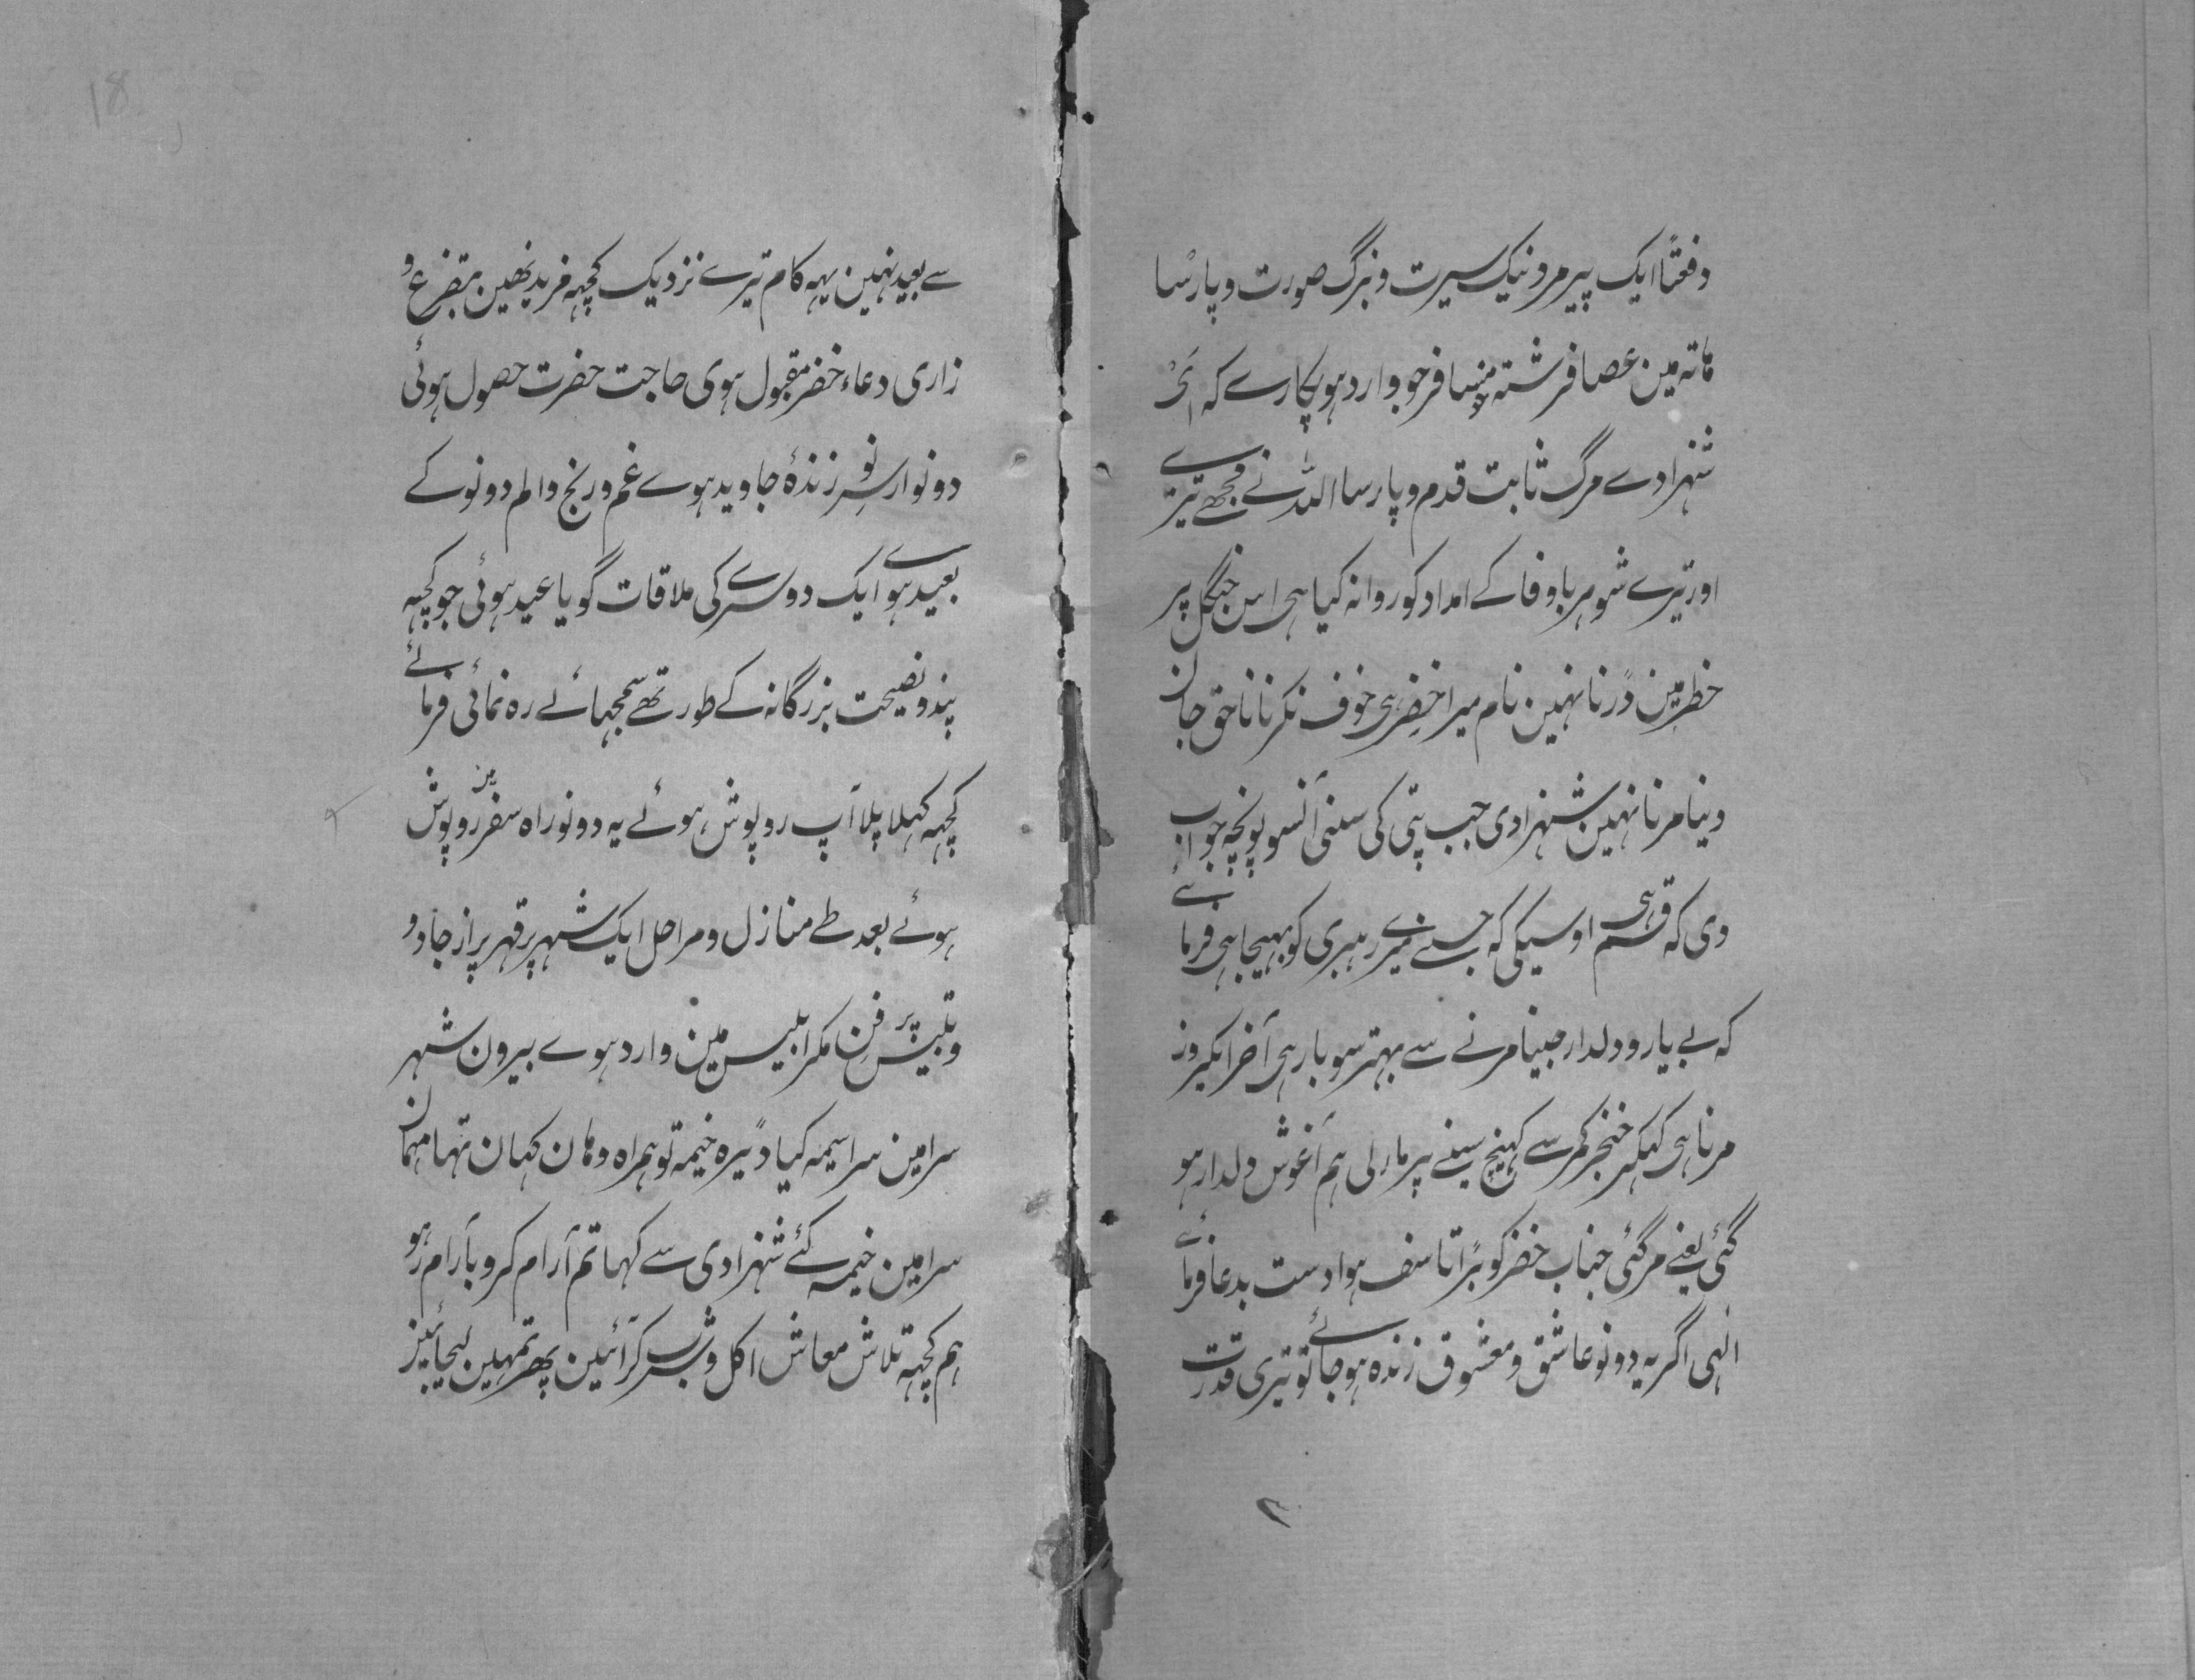 دفعتًا ایک پیر مرد نیک سیرت و بزرگ صورت و پارسا
ہاتہ مین عصا فرشتہ مسافر جو وارد ہو پکارے کہ اَی
شہزادے مرگ ثابت قدم و پارسا اللہ نے مجھے تیرے
اور تیرے شوہر باوفا کے امداد کو روانہ کیا ہی اس جنگل پر
خطر مین ڈرنا نہین نام میرا خضر ہی خوف نکرنا ناحق جان
دینا مرنا نہین شہزادی جب پتی کی سنی آنسو پونچہ جواب
دی کہ قسم ہی اوسیکی کہ جسنے میرے رہبری کو بہیجا ہی فرمائے
کہ بے یار و دلدار جینا مرنے سے بہتر سو بار ہی آخر ایکروز
مرنا ہی کہکر خنجر کمر سے کہینچ سینے پر مار لی ہم آغوش دلدار ہو
گئی یعنے مر گئی جناب خضر کو بڑا تاسف ہوا دست بدعا فرمائے
الٰہی اگر یہ دونو عاشق و معشوق زندہ ہو جائے تو تیری قدرت
۲
18
سے بعید نہین یہہ کام تیرے نزدیک کچہہ مزید نہین بتضرع و
زاری دعاء خضر مقبول ہوی حاجت حضرت حصول ہوئی
دونو از سر نو زندۂ جاوید ہوے غم و رنج و الم دونو کے
بعید ہوے ایک دوسرے کی ملاقات گویا عید ہوئی جو کچہہ
پند و نصیحت بزرگانہ کے طور تھے سمجہائے رہ نمائی فرمائے
کچہہ کہلا پلا آپ روپوش ہوئے یہ دونو راہ سفر مین روپوش
ہوئے بعد طے منازل و مراحل ایک شہر پر قہر پر از جادو
و تلبیس پر فن مکر ابلیس مین وارد ہوے بیرون شہر
سرا مین سراسیمہ کیا ڈیرہ خیمہ تو ہمراہ وہان کہان تہا مہمان
سرا مین خیمہ کئے شہزادی سے کہا تم آرام کرو بآرام رہو
ہم کچہہ تلاش معاش اکل و شرب کر آئین پھر تمہین لیجائین